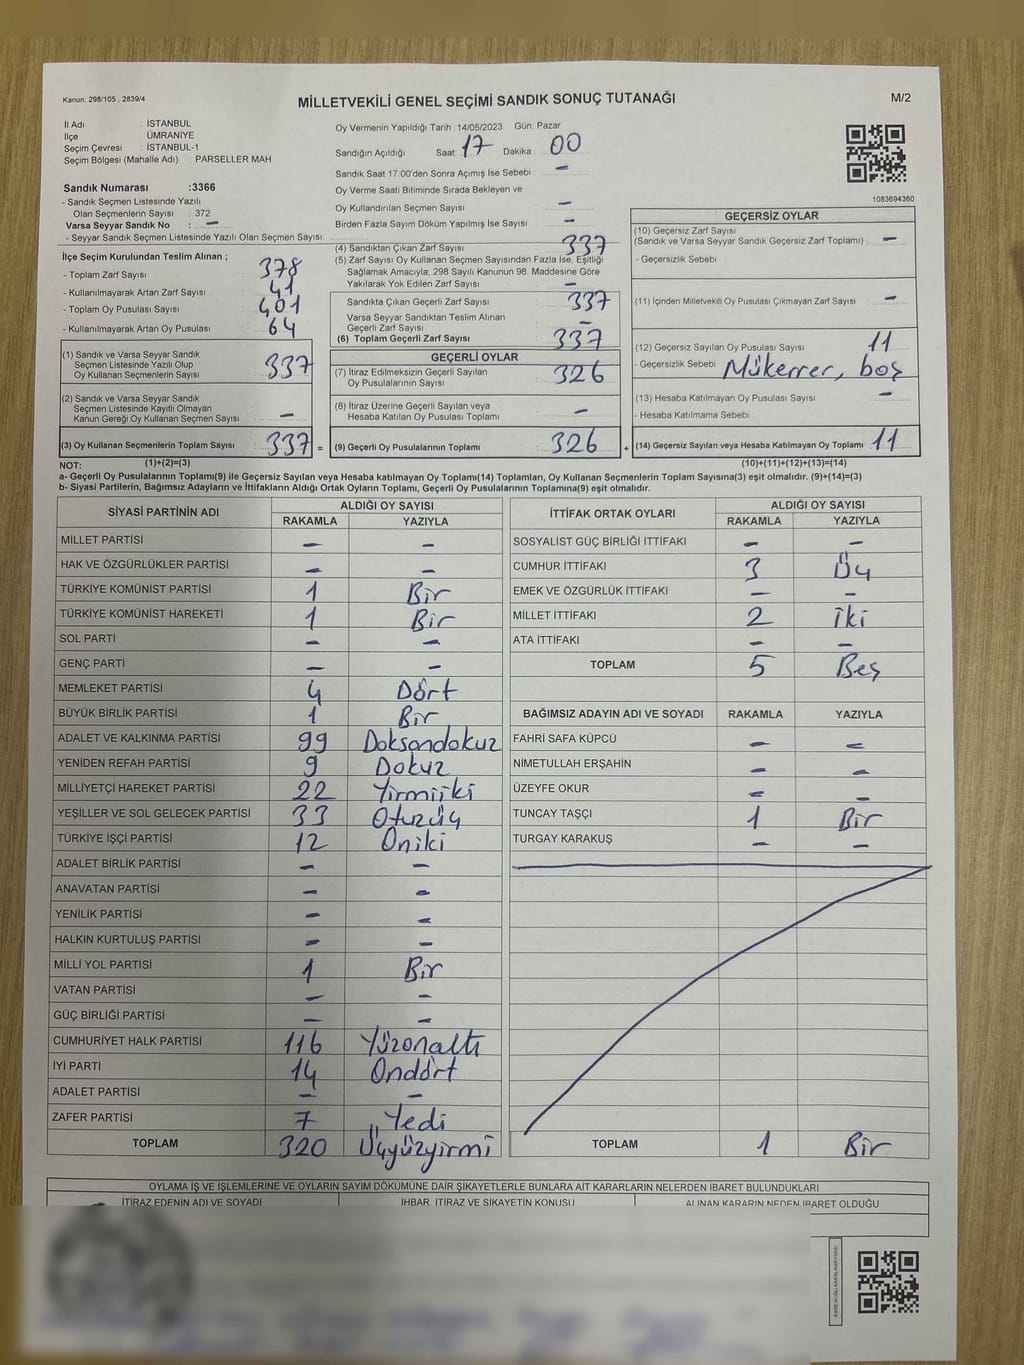 Kanun: 298/105 , 2839/4
MİLLETVEKİLİ GENEL SEÇİMİ SANDIK SONUÇ TUTANAĞI
M/2
İl Adı : İSTANBUL
İlçe : ÜMRANİYE
Seçim Çevresi : İSTANBUL-1
Seçim Bölgesi (Mahalle Adı) : PARSELLER MAH
Sandık Numarası :3366
- Sandık Seçmen Listesinde Yazılı
Olan Seçmenlerin Sayısı : 372
Varsa Seyyar Sandık No : –
- Seyyar Sandık Seçmen Listesinde Yazılı Olan Seçmen Sayısı:
Oy Vermenin Yapıldığı Tarih :14/05/2023 Gün: Pazar
Sandığın Açıldığı Saat: 17 Dakika : 00
Sandık Saat 17.00'den Sonra Açılmış İse Sebebi : –
Oy Verme Saati Bitiminde Sırada Bekleyen ve
Oy Kullandırılan Seçmen Sayısı : –
Birden Fazla Sayım Döküm Yapılmış İse Sayısı : –
1083694360
İlçe Seçim Kurulundan Teslim Alınan ;
- Toplam Zarf Sayısı : 378
- Kullanılmayarak Artan Zarf Sayısı : 41
- Toplam Oy Pusulası Sayısı : 401
- Kullanılmayarak Artan Oy Pusulası : 64
(1) Sandık ve Varsa Seyyar Sandık
Seçmen Listesinde Yazılı Olup
Oy Kullanan Seçmenlerin Sayısı : 337
(2) Sandık ve Varsa Seyyar Sandık
Seçmen Listesinde Kayıtlı Olmayan
Kanun Gereği Oy Kullanan Seçmen Sayısı : –
(3) Oy Kullanan Seçmenlerin Toplam Sayısı : 337 =
(1)+(2)=(3)
(4) Sandıktan Çıkan Zarf Sayısı : 337
(5) Zarf Sayısı Oy Kullanan Seçmen Sayısından Fazla İse, Eşitliği
Sağlamak Amacıyla; 298 Sayılı Kanunun 98. Maddesine Göre
Yakılarak Yok Edilen Zarf Sayısı : –
Sandıkta Çıkan Geçerli Zarf Sayısı : 337
Varsa Seyyar Sandıktan Teslim Alınan
Geçerli Zarf Sayısı : –
(6) Toplam Geçerli Zarf Sayısı : 337
GEÇERLİ OYLAR
(7) İtiraz Edilmeksizin Geçerli Sayılan
Oy Pusulalarının Sayısı : 326
(8) İtiraz Üzerine Geçerli Sayılan veya
Hesaba Katılan Oy Pusulası Toplamı : –
(9) Geçerli Oy Pusulalarının Toplamı : 326 +
GEÇERSİZ OYLAR
(10) Geçersiz Zarf Sayısı
(Sandık ve Varsa Seyyar Sandık Geçersiz Zarf Toplamı) : –
- Geçersizlik Sebebi :
(11) İçinden Milletvekili Oy Pusulası Çıkmayan Zarf Sayısı : –
(12) Geçersiz Sayılan Oy Pusulası Sayısı : 11
- Geçersizlik Sebebi : Mükerrer, boş
(13) Hesaba Katılmayan Oy Pusulası Sayısı : –
- Hesaba Katılmama Sebebi :
(14) Geçersiz Sayılan veya Hesaba Katılmayan Oy Toplamı : 11
(10)+(11)+(12)+(13)=(14)
NOT:
a- Geçerli Oy Pusulalarının Toplamı(9) ile Geçersiz Sayılan veya Hesaba katılmayan Oy Toplamı(14) Toplamları, Oy Kullanan Seçmenlerin Toplam Sayısına(3) eşit olmalıdır. (9)+(14)=(3)
b- Siyasi Partilerin, Bağımsız Adayların ve İttifakların Aldığı Ortak Oyların Toplamı, Geçerli Oy Pusulalarının Toplamına(9) eşit olmalıdır.
SİYASİ PARTİNİN ADI ALDIĞI OY SAYISI
RAKAMLA YAZIYLA
MİLLET PARTİSİ – –
HAK VE ÖZGÜRLÜKLER PARTİSİ – –
TÜRKİYE KOMÜNİST PARTİSİ 1 Bir
TÜRKİYE KOMÜNİST HAREKETİ 1 Bir
SOL PARTİ – –
GENÇ PARTİ – –
MEMLEKET PARTİSİ 4 Dört
BÜYÜK BİRLİK PARTİSİ 1 Bir
ADALET VE KALKINMA PARTİSİ 99 Doksandokuz
YENİDEN REFAH PARTİSİ 9 Dokuz
MİLLİYETÇİ HAREKET PARTİSİ 22 Yirmiiki
YEŞİLLER VE SOL GELECEK PARTİSİ 33 Otuzüç
TÜRKİYE İŞÇİ PARTİSİ 12 Oniki
ADALET BİRLİK PARTİSİ – –
ANAVATAN PARTİSİ – –
YENİLİK PARTİSİ – –
HALKIN KURTULUŞ PARTİSİ – –
MİLLİ YOL PARTİSİ 1 Bir
VATAN PARTİSİ – –
GÜÇ BİRLİĞİ PARTİSİ – –
CUMHURİYET HALK PARTİSİ 116 Yüzonaltı
İYİ PARTİ 14 Ondört
ADALET PARTİSİ – –
ZAFER PARTİSİ 7 Yedi
TOPLAM 320 Üçyüzyirmi
İTTİFAK ORTAK OYLARI ALDIĞI OY SAYISI
RAKAMLA YAZIYLA
SOSYALİST GÜÇ BİRLİĞİ İTTİFAKI – –
CUMHUR İTTİFAKI 3 Üç
EMEK VE ÖZGÜRLÜK İTTİFAKI – –
MİLLET İTTİFAKI 2 İki
ATA İTTİFAKI – –
TOPLAM 5 Beş
BAĞIMSIZ ADAYIN ADI VE SOYADI RAKAMLA YAZIYLA
FAHRİ SAFA KÜPCÜ – –
NİMETULLAH ERŞAHİN – –
ÜZEYFE OKUR – –
TUNCAY TAŞÇI 1 Bir
TURGAY KARAKUŞ – –
TOPLAM 1 Bir
OYLAMA İŞ VE İŞLEMLERİNE VE OYLARIN SAYIM DÖKÜMÜNE DAİR ŞİKAYETLERLE BUNLARA AİT KARARLARIN NELERDEN İBARET BULUNDUKLARI
İTİRAZ EDENİN ADI VE SOYADI İHBAR, İTİRAZ VE ŞİKAYETİN KONUSU ALINAN KARARIN NEDEN İBARET OLDUĞU